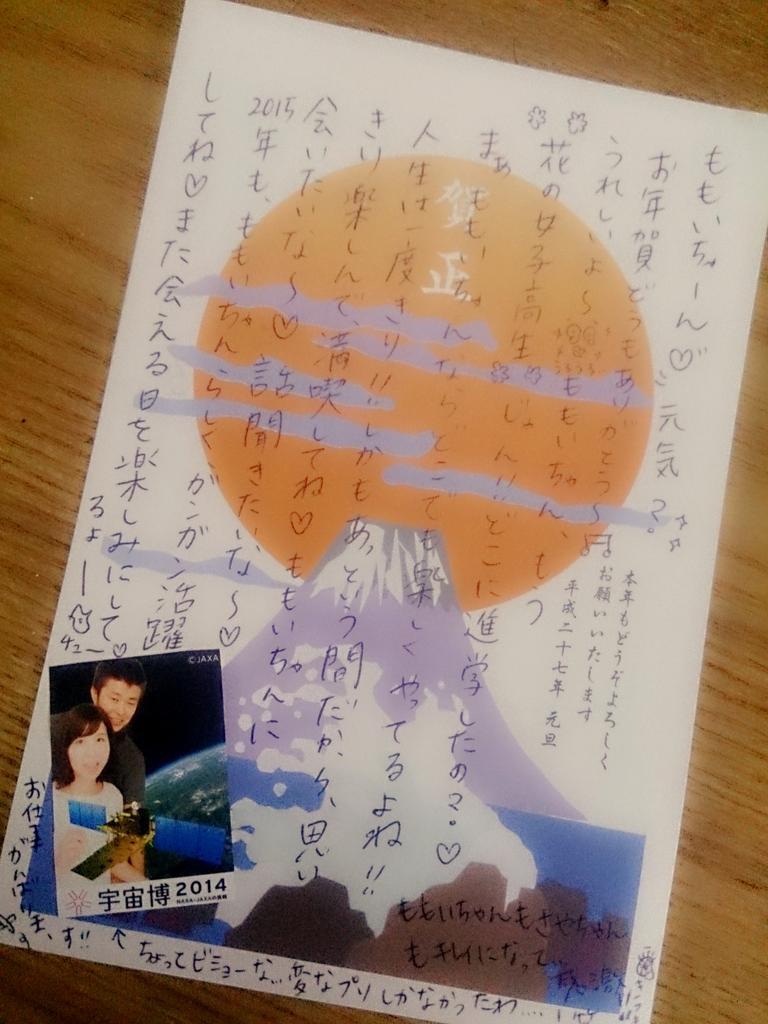 ももいちゃーん♡ 元気?
お年賀どうもありがとう〜♬
うれしいよ〜 ももいちゃん、もう
花の女子高生 じゃん!!どこに進学したの?。♡
まぁ ももいちゃんならどこでも楽しくやってるよね!!
人生は一度きり!!しかもあっという間だから、思い
きり楽しんで、満喫してね♡ ももいちゃんに
会いたいな〜♡ 話聞きたいな〜♡
2015年も、ももいちゃんらしく、ガンガン活躍
してね♡また会える日を楽しみにして♡
るよー
チュー
賀正
本年もどうぞよろしく
お願いいたします
平成二十七年 元旦
©JAXA
宇宙博2014
NASA・JAXAの挑戦
お仕事がんばります!!
↑ちょってビミョーな…変なプリしかなかったわ….
ももいちゃんもさやちゃん
もキレイになって…